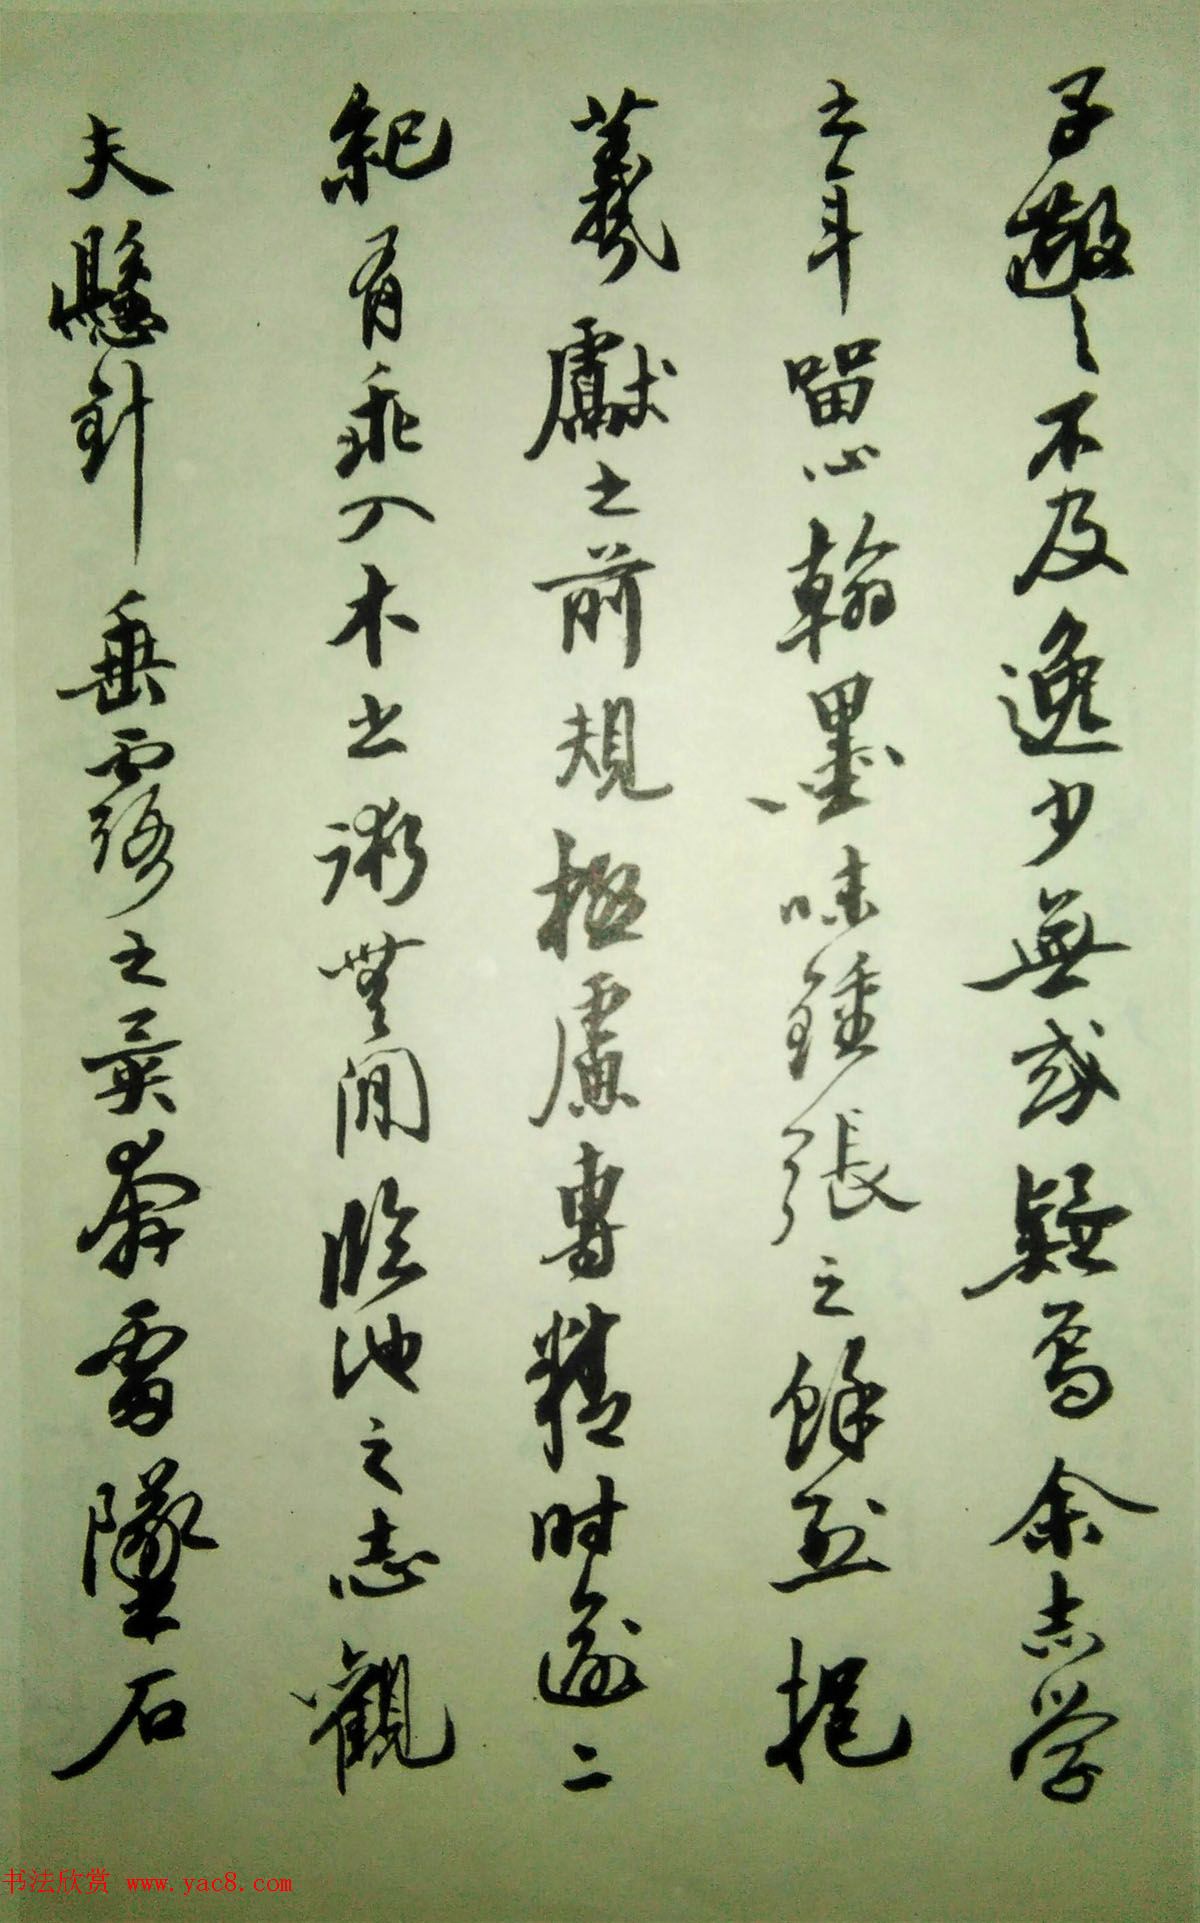 子敬之不及逸少無或疑焉余志学
之年留心翰墨味鍾張之餘烈挹
羲獻之前規極慮專精时逾二
紀有乖入木之術無间臨池之志觀
夫懸針垂露之異奔雷墜石
书法欣赏 www.yac8.com